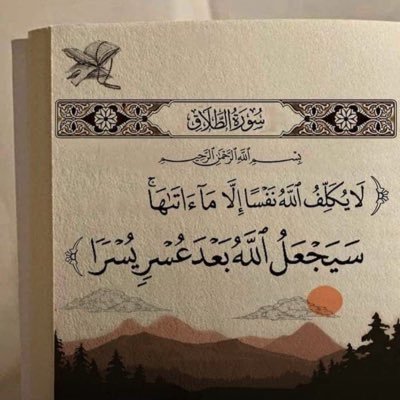 سُورَةُ الطَّلَاقِ
بِسْمِ اللَّهِ الرَّحْمَٰنِ الرَّحِيمِ
﴿لَا يُكَلِّفُ ٱللَّهُ نَفْسًا إِلَّا مَآ ءَاتَىٰهَاۚ
سَيَجْعَلُ ٱللَّهُ بَعْدَ عُسْرٍ يُسْرًا﴾